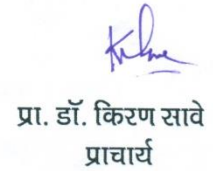 प्रा. डॉ. किरण सावे
प्राचार्य